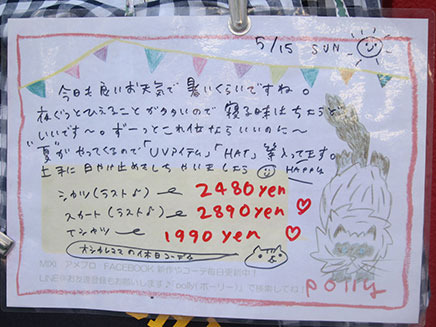 5/15 SUN
今日も良いお天気で暑いくらいですね。
夜ぐっとひえることがなので寝る時はちょうど
いいです〜。ずーっとこれ位ならいいのに〜
"夏"がやってくるので「UVアイテム」「HAT」等入ってます。
上手に日やけ止めをしちゃいましょう HAPPY
シャツ(ラスト♪) 2480yen
スカート(ラスト♪) 2890yen
Tシャツ 1990yen
オシャレママの休日コーデ
MIXI アメブロ FACEBOOK 新作やコーデ毎日更新中!
LINE@お友達登録もお願いします♪「polly(ポーリー)」で検索してね!
polly